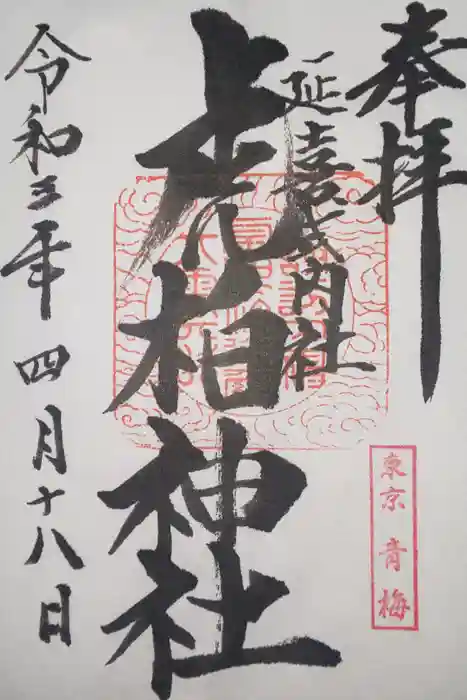 奉拝
延喜式内社
虎柏神社
令和三年四月十八日
東京 青梅